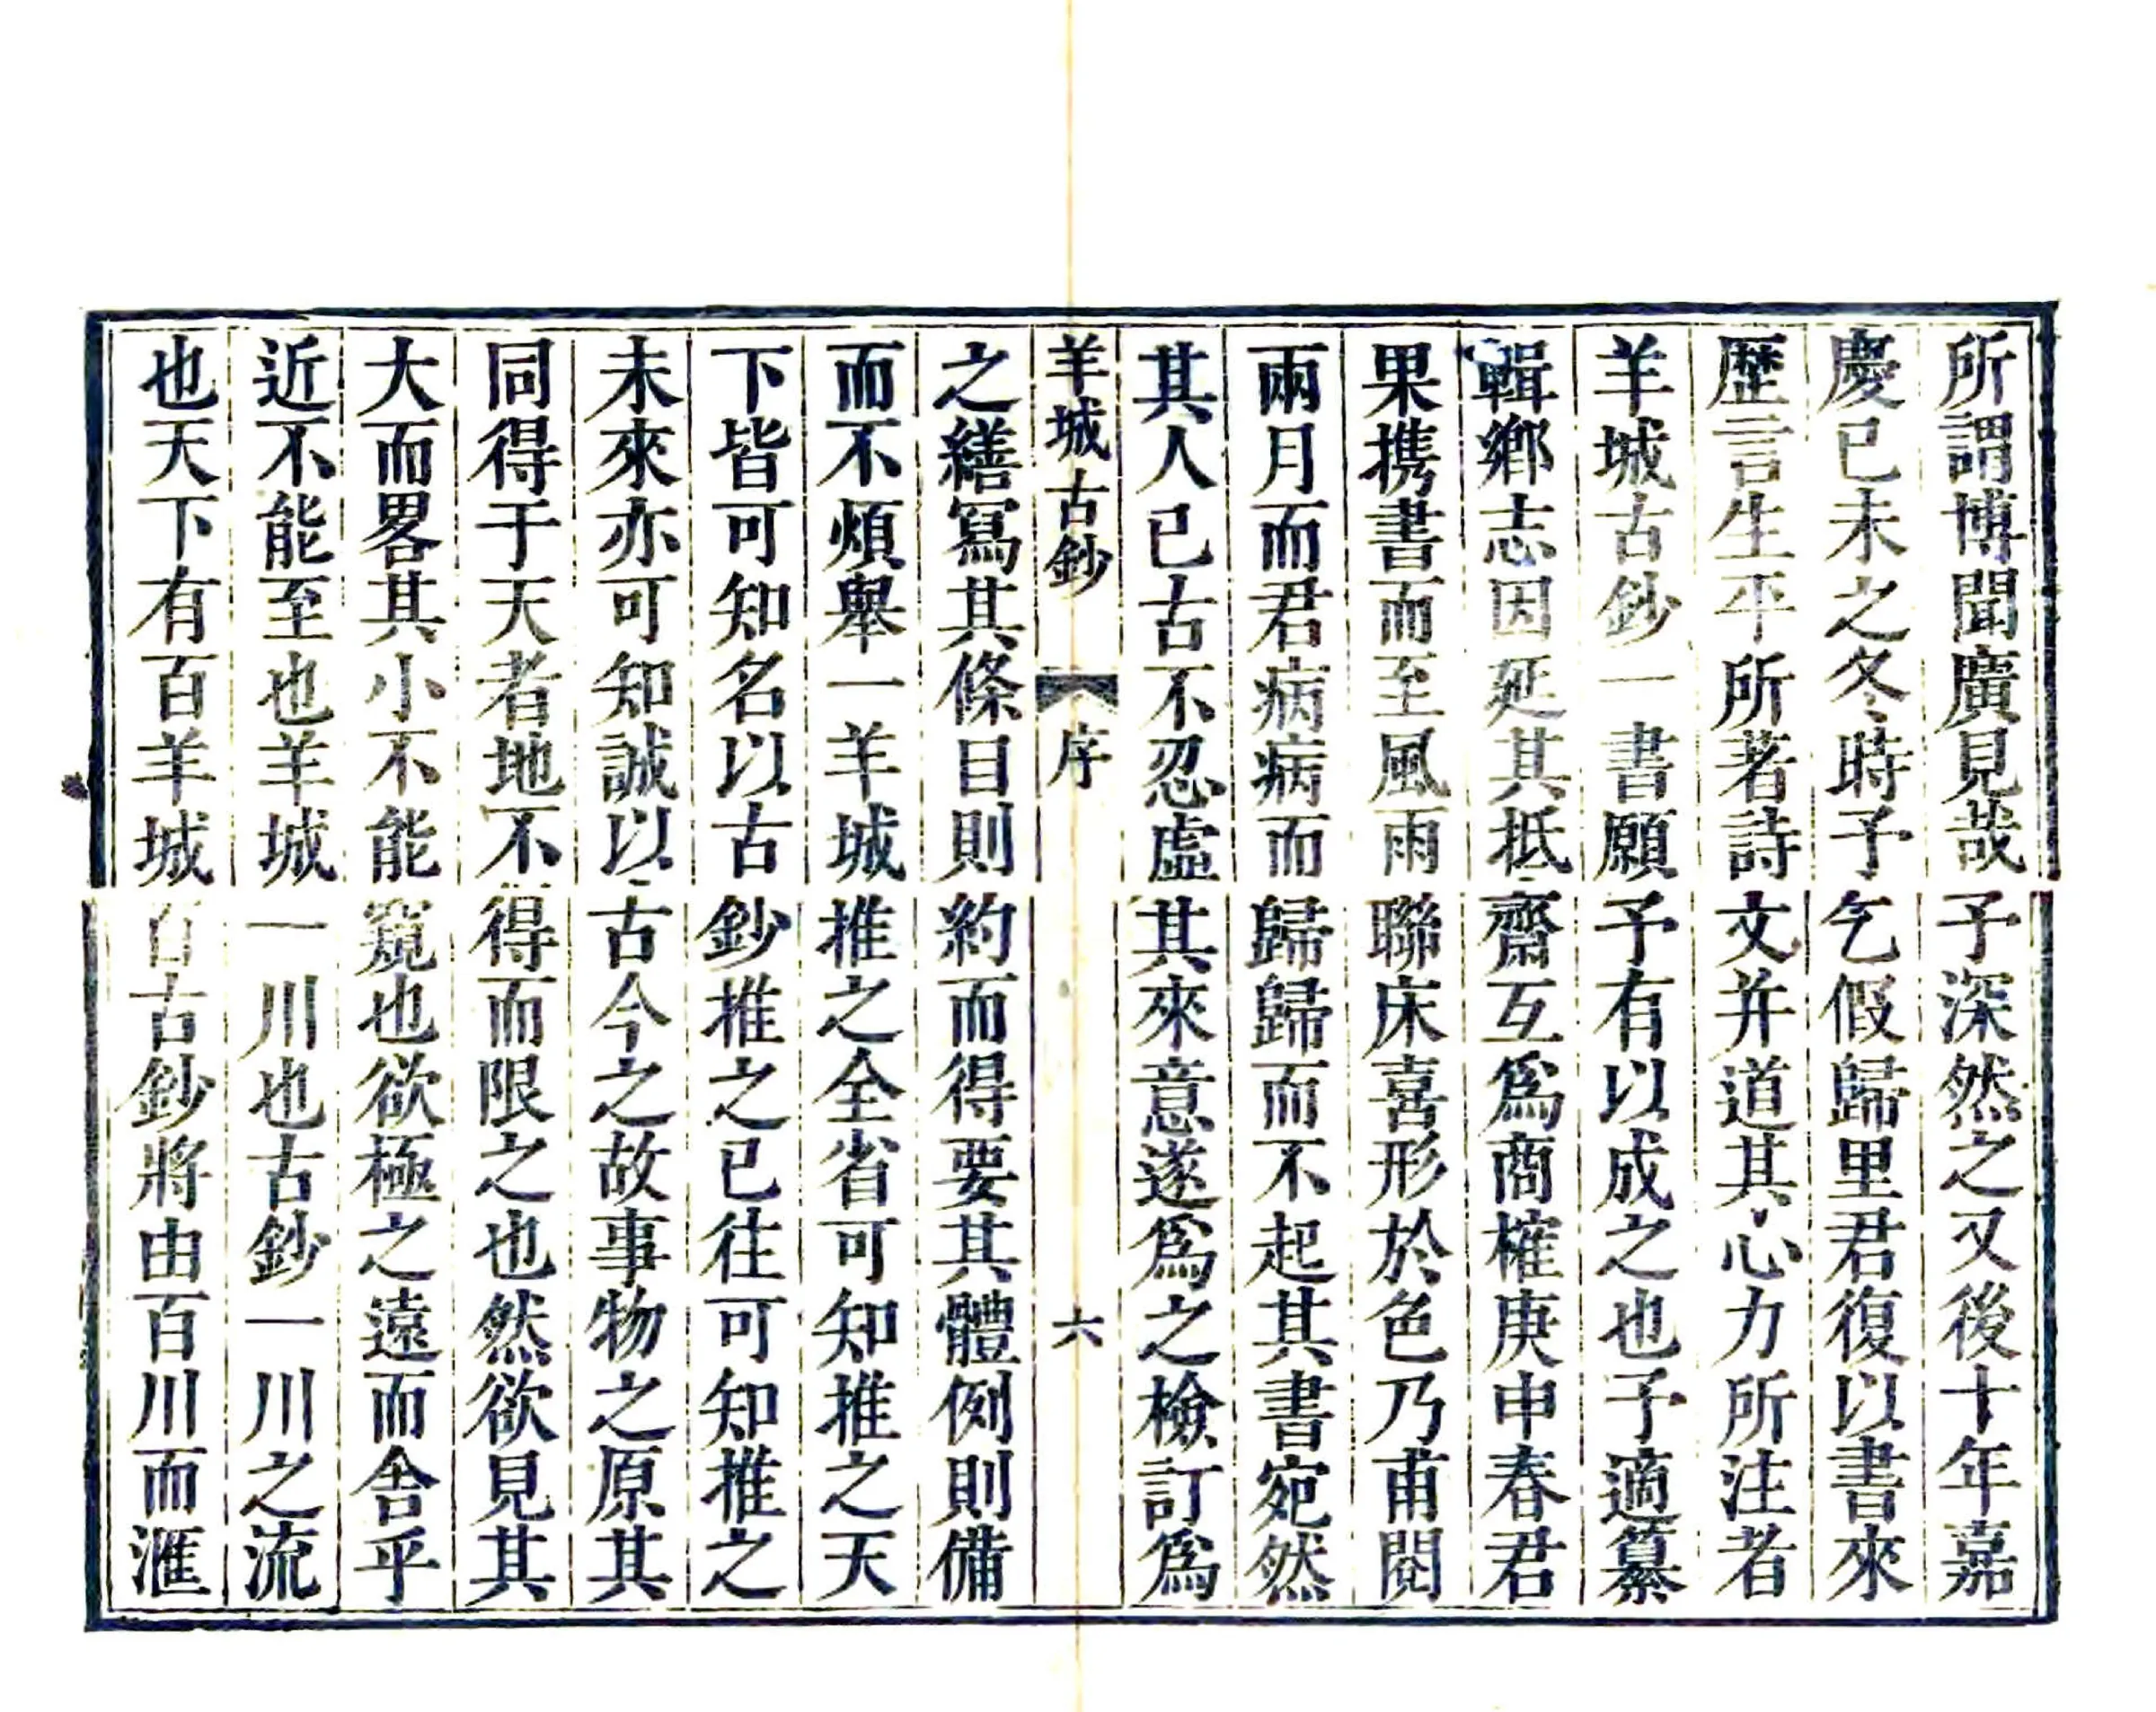 所謂博聞廣見哉予深然之又後十年嘉
慶已未之冬時予乞假歸里君復以書來
歷言生平所著詩文并道其心力所注者
羊城古鈔一書願予有以成之也予適纂
輯鄉志因延其抵齋互爲商榷庚申春君
果携書而至風雨聯床喜形於色乃甫閱
兩月而君病病而歸歸而不起其書宛然
其人已古不忍虛其來意遂爲之檢訂爲
羊城古鈔
序
六
之繕寫其條目則約而得要其體例則備
而不煩舉一羊城推之全省可知推之天
下皆可知名以古鈔推之已往可知推之
未來亦可知誠以古今之故事物之原其
同得于天者地不得而限之也然欲見其
大而畧其小不能窺也欲極之遠而舍乎
近不能至也羊城一川也古鈔一川之流
也天下有百羊城百古鈔將由百川而滙